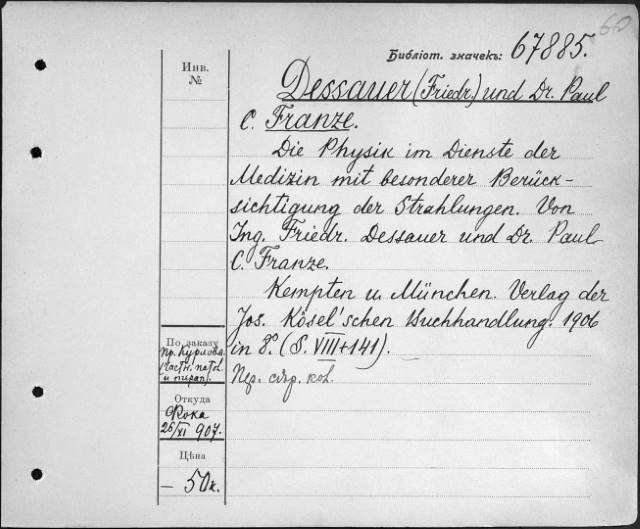 60
Библіот. значекъ: 67885.
Инв.
№
Dessauer (Friedr.) und Dr. Paul
C. Franze.
Die Physik im Dienste der
Medizin mit besonderer Berück-
sichtigung der Strahlungen. Von
Ing. Friedr. Dessauer und Dr. Paul
C. Franze.
Kempten u. München. Verlag der
Jos. Kösel'schen Buchhandlung. 1906
in 8º. (S. VIII+141).
По заказу
пр. Курлова.
(частн. патол.
и терап).
Откуда
Фока
26/XI 907.
Цѣна
— 50к.